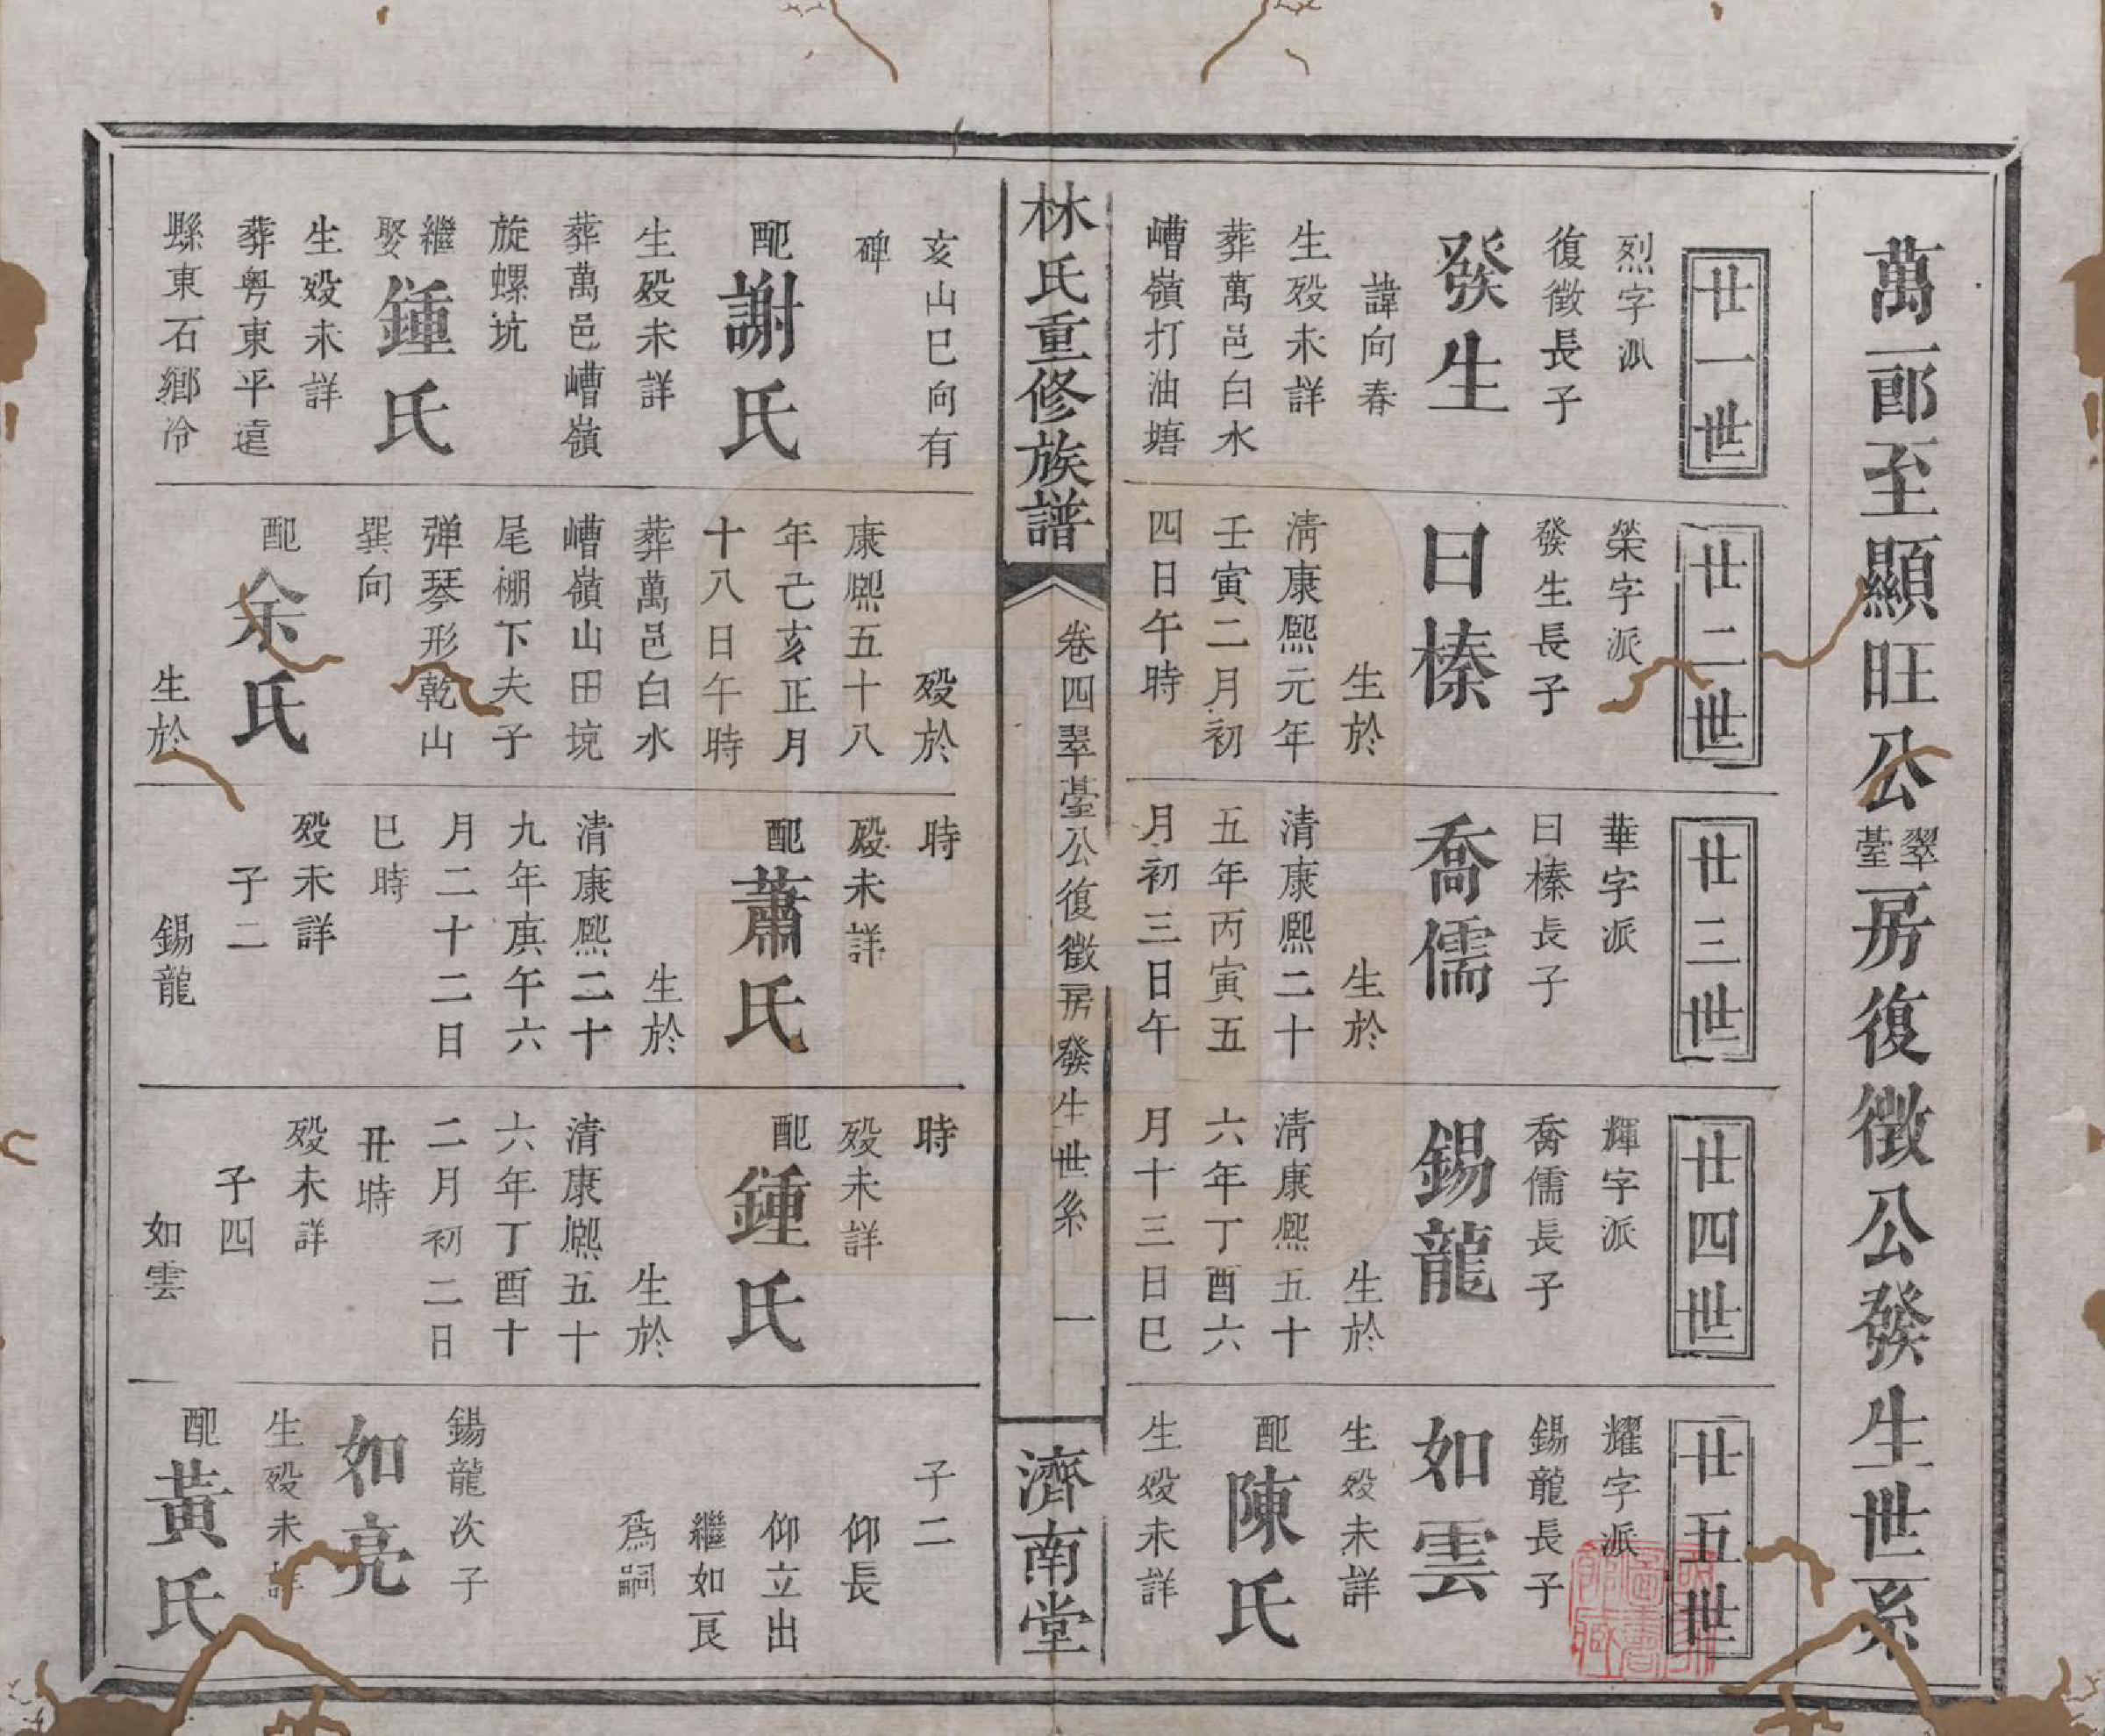 萬一郎至顯旺公翠臺房復徵公發生世系
廿一世
烈字派
復徵長子
發生
諱向春
生歿未詳
葬萬邑白水
嶆嶺打油塘
廿二世
榮字派
發生長子
曰榛
生於
清康熙元年
壬寅二月初
四日午時
廿三世
華字派
曰榛長子
喬儒
生於
清康熙二十
五年丙寅五
月初三日午
廿四世
輝字派
喬儒長子
錫龍
生於
清康熙五十
六年丁酉六
月十三日巳
廿五世
耀字派
錫龍長子
如雲
生歿未詳
配陳氏
生歿未詳
林氏重修族譜
卷四翠臺公復徵房發生世系
一
濟南堂
亥山巳向有
碑
配謝氏
生歿未詳
葬萬邑嶆嶺
旋螺坑
繼娶鍾氏
生歿未詳
葬粤東平遠
縣東石鄉冷
歿於
康熙五十八
年己亥正月
十八日午時
葬萬邑白水
嶆嶺山田境
尾棚下夫子
弹琴形乾山
巽向
配余氏
生於
時
歿未詳
配蕭氏
生於
清康熙二十
九年庚午六
月二十二日
巳時
歿未詳
子二
錫龍
時
歿未詳
配鍾氏
生於
清康熙五十
六年丁酉十
二月初二日
丑時
歿未詳
子四
如雲
子二
仰長
仰立出
繼如艮
爲嗣
錫龍次子
如亮
生歿未詳
配黃氏